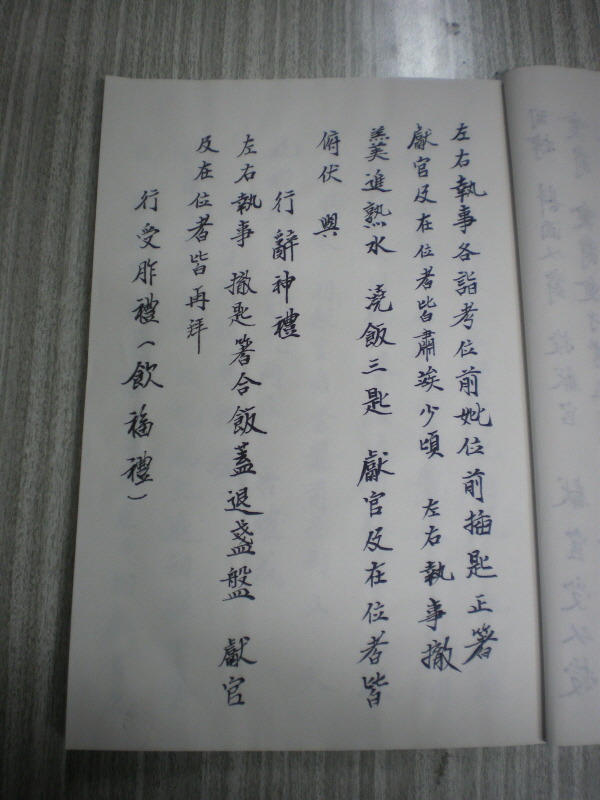 左右執事各詣考位前妣位前揷匙正箸
獻官及在位者皆肅俟少頃 左右執事撤
羹進熟水 澆飯三匙 獻官及在位者皆
俯伏 興
行辭神禮
左右執事 撤匙箸合飯蓋退盞盤 獻官
及在位者皆再拜
行受胙禮(飮福禮)